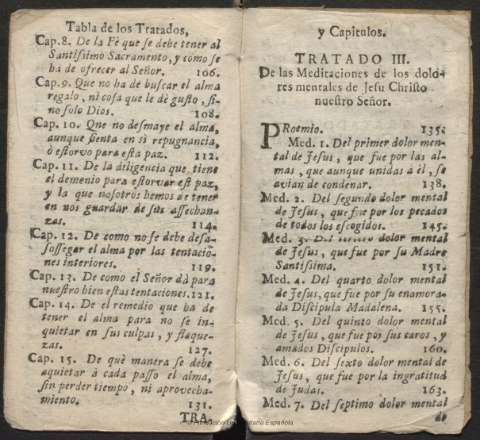 Tabla de los Tratados,
Cap. 8. De la Fè que se debe tener al
Santissimo Sacramento, y como se
ha de ofrecer al Señor. 106.
Cap. 9. Que no ha de buscar el alma
regalo, ni cosa que le dè gusto, si-
no solo Dios. 108.
Cap. 10. Que no desmaye el alma,
aunque sienta en si repugnancia,
ò estorvo para esta paz. 112.
Cap. 11. De la diligencia que tiene
el demonio para estorvar est paz,
y la que nosotros hemos de tener
en nos guardar de sus assechan-
zas. 114.
Cap. 12. De como no se debe desa-
sossegar el alma por las tentacio-
nes interiores. 119.
Cap. 13. De como el Señor dà para
nuestro bien estas tentaciones. 121.
Cap. 14. De el remedio que ha de
tener el alma para no se in-
quietar en sus culpas, y flaque-
zas. 127.
Cap. 15. De què manera se debe
aquietar à cada passo el alma,
sin perder tiempo, ni aprovecha-
miento. 131.
TRA.
y Capitulos.
TRATADO III.
De las Meditaciones de los dolo-
res mentales de Jesu Christo
nuestro Señor.
PRoemio. 135.
Med. 1. Del primer dolor men-
tal de Jesus, que fue por las al-
mas, que aunque unidas à èl, se
avian de condenar. 138.
Med. 2. Del segundo dolor mental
de Jesus, que fue por los pecados
de todos los escogidos. 145.
Med. 3. Del tercero dolor mental
de Jesus, que fue por su Madre
Santissima. 151.
Med. 4. Del quarto dolor mental
de Jesus, que fue por su enamora-
da Discipula Madalena. 155.
Med. 5. Del quinto dolor mental
de Jesus, que fue por sus caros, y
amados Discipulos. 160.
Med. 6. Del sexto dolor mental de
Jesus, que fue por la ingratitud
de Judas. 163.
Med. 7. Del septimo dolor mental
de
Española